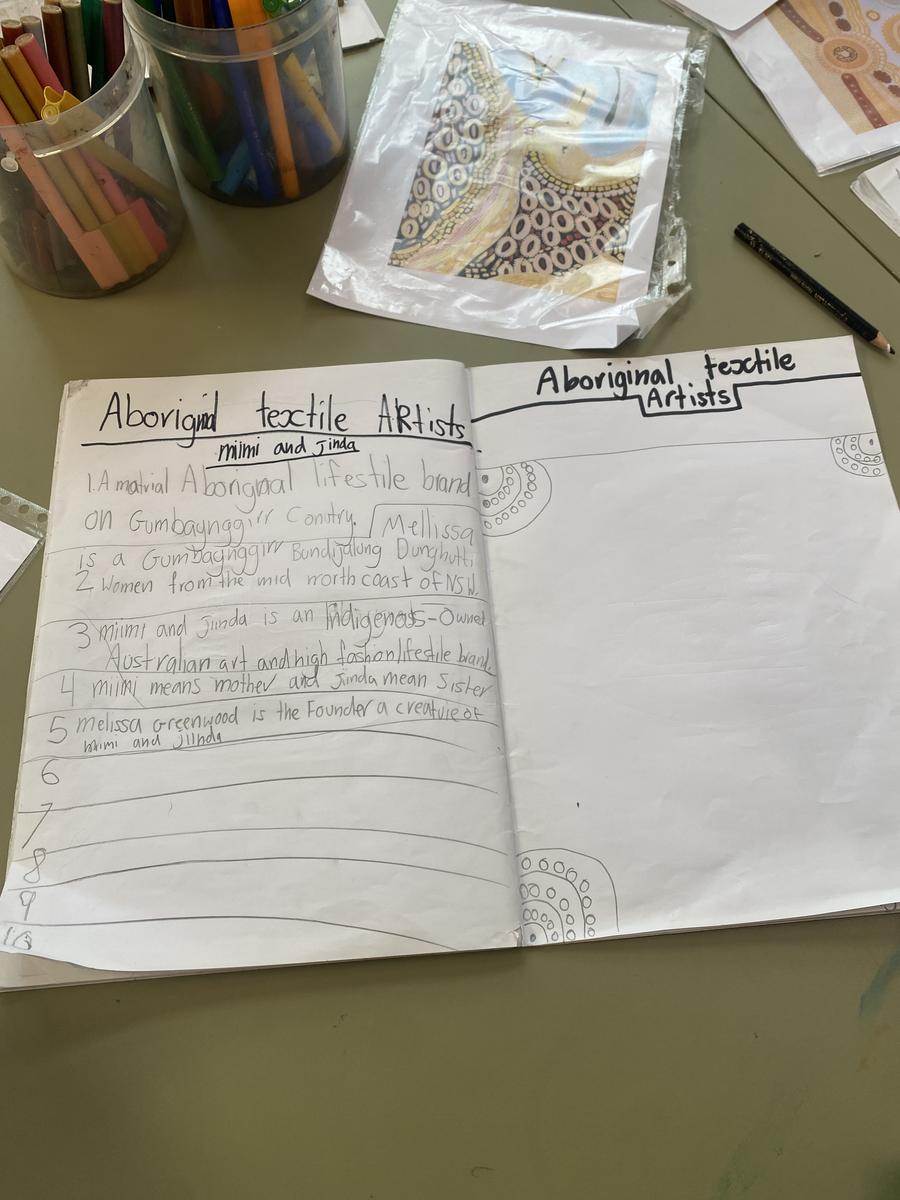 Aboriginal textile ARtists
miimi and Jinda
1. A matrial Aborignal lifestile brand
on Gumbaynggirr Conitry. Mellissa
is a Gumbaynggirr Bundjalung Dunghutti
2 women from the mid north coast of NSW.
3 miimi and Jinda is an Indigenous-Owned
Australian art and high fashion lifestile brand.
4 miimi means mother and Jinda mean Sister
5 Melissa Greenwood is the Founder a creative of
miimi and Jiinda
6
7
8
9
10
Aboriginal textile
Artists